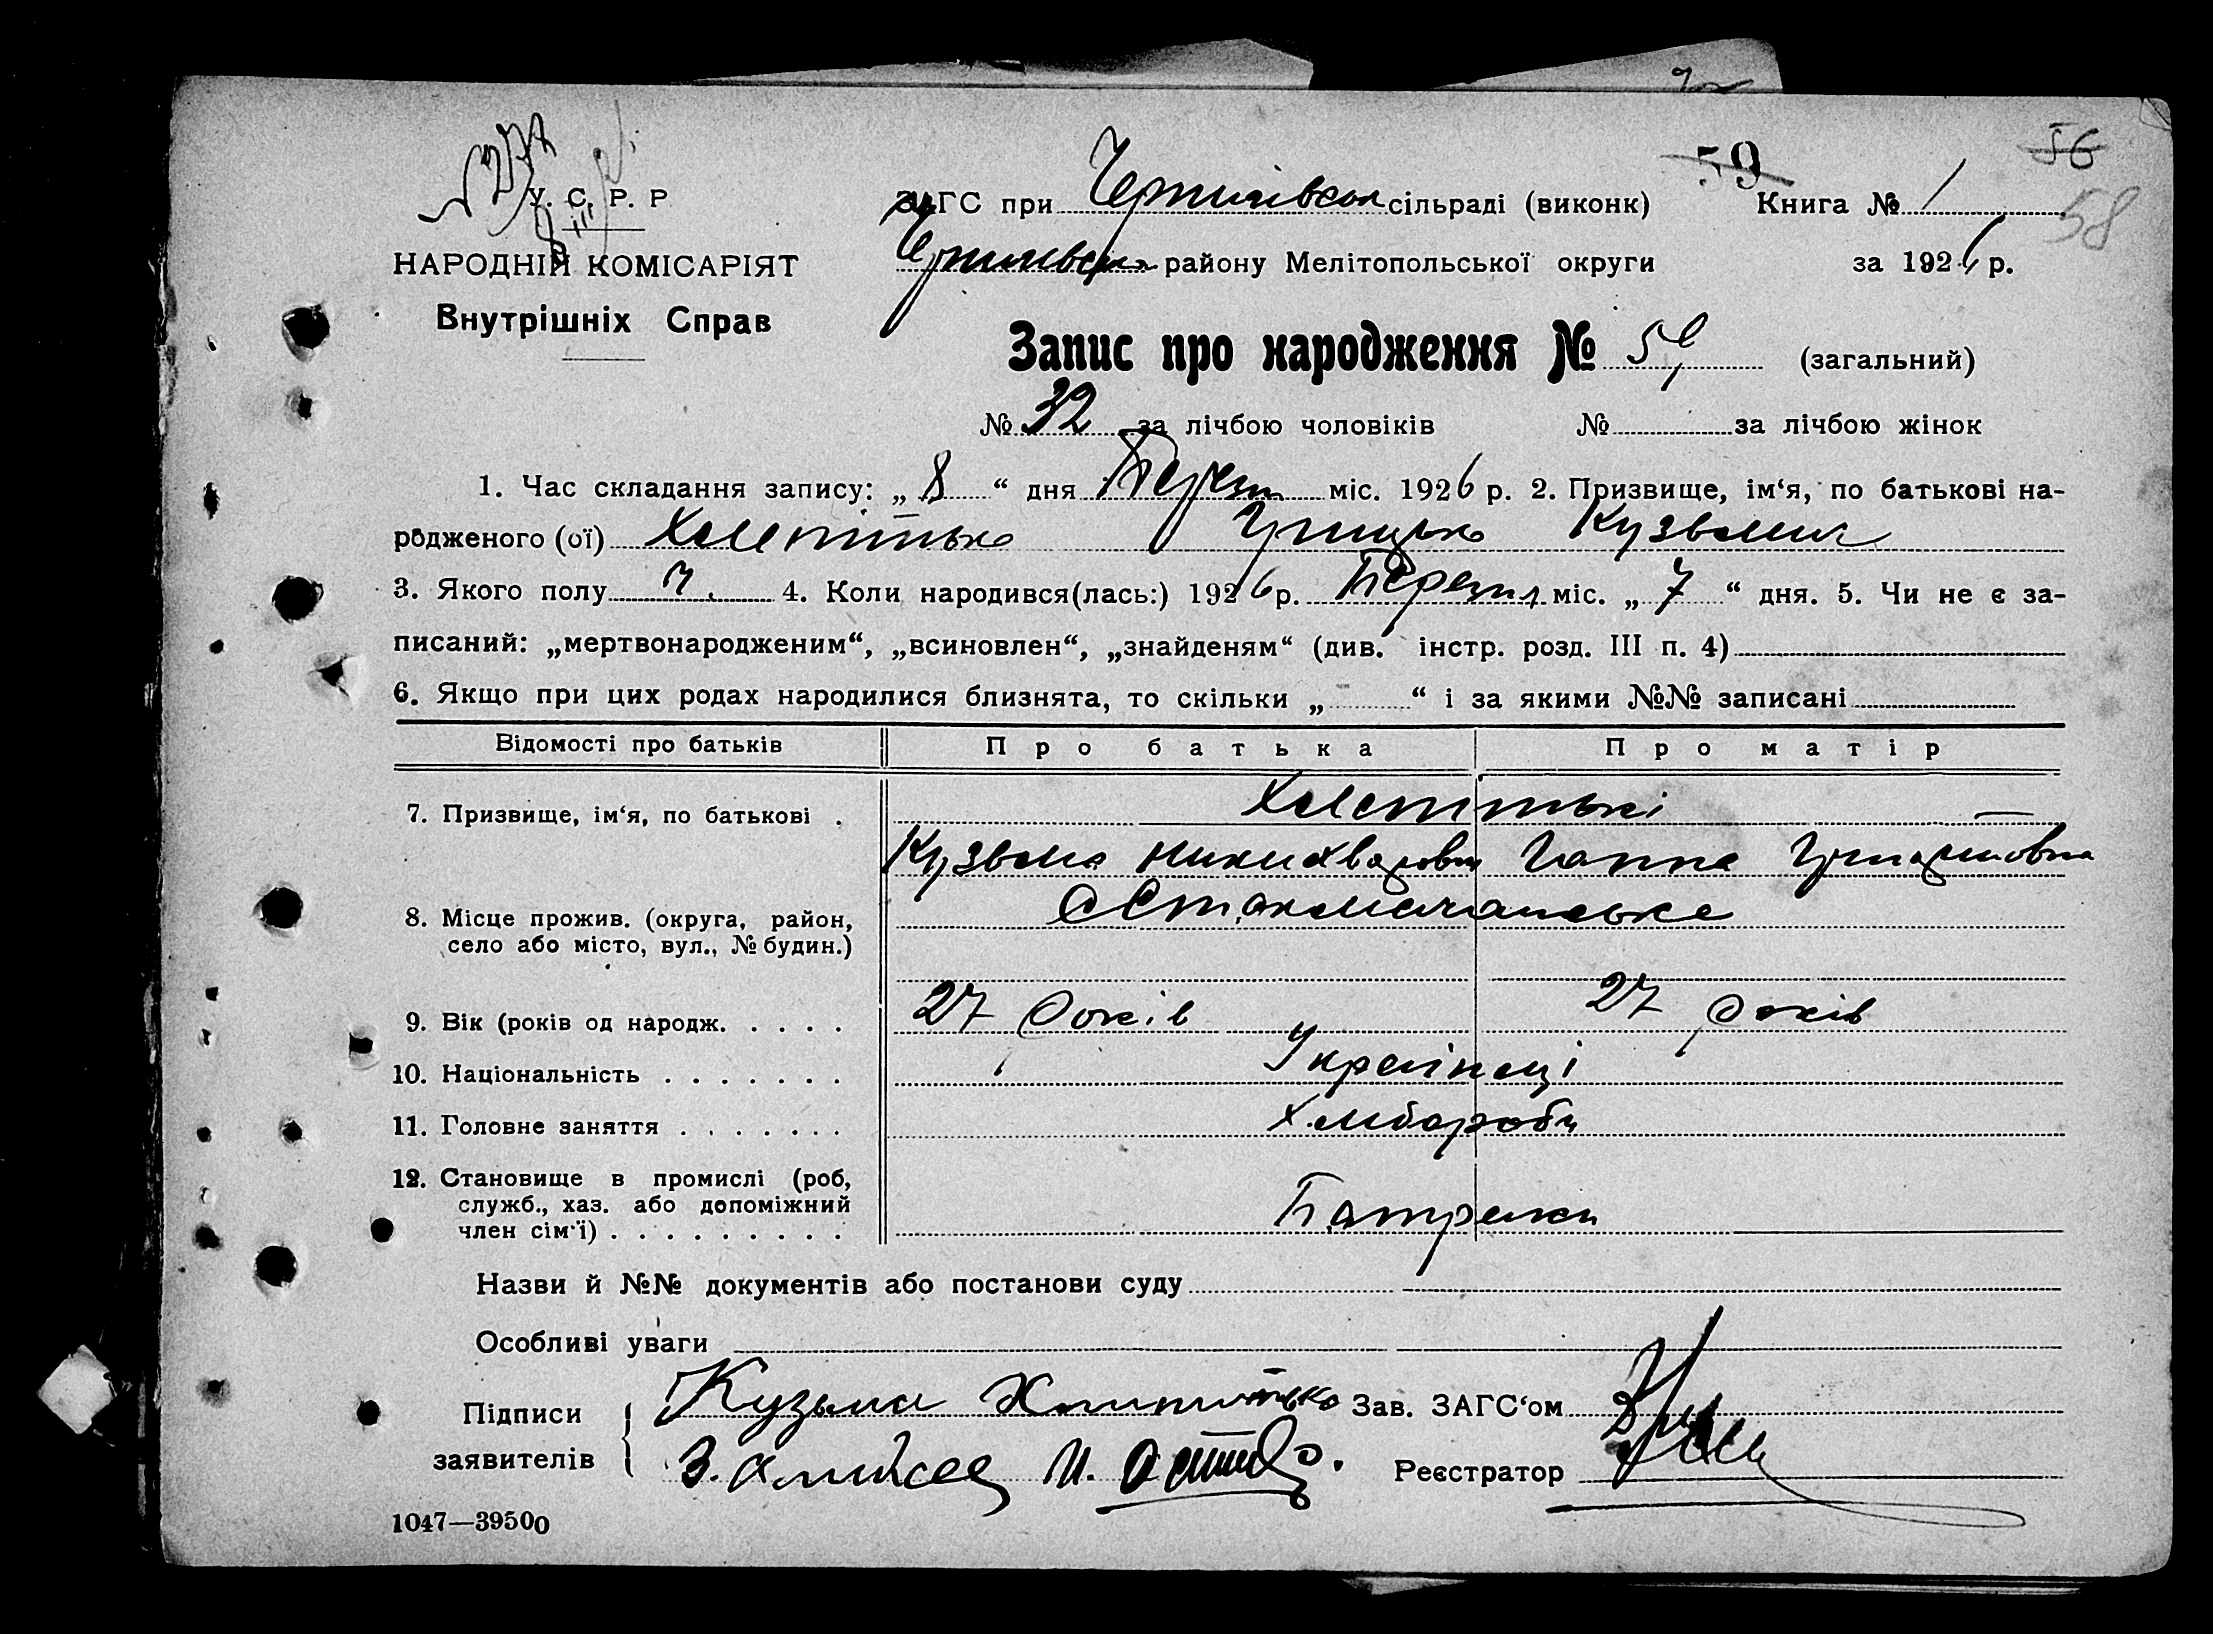 59 56
У. С. Р. Р ЗАГС при Чернигівськ сільраді (виконк) Книга № 1
58
НАРОДНІЙ КОМІСАРІЯТ району Мелітопольської округи за 1926 р.
Внутрішніх Справ
Запис про народження № 59 (загальний)
№ 32 за лічбою чоловіків № за лічбою жінок
1. Час складання запису: „ 8 “ дня міс. 1926 р. 2. Призвище, ім‘я, по батькові на-
родженого (ої) Грицько Кузьмич
3. Якого полу ч. 4. Коли народився(лась:) 1926 р. Березня міс. „ 7 “ дня. 5. Чи не є за-
писаний: „мертвонародженим“, „всиновлен“, „знайденям“ (див. інстр. розд. III п. 4)
6. Якщо при цих родах народилися близнята, то скільки „ “ і за якими №№ записані
Відомості про батьків Про батька Про матір
7. Призвище, ім‘я, по батькові .
Кузьма Ганна
8. Місце прожив. (округа, район,
село або місто, вул., № будин.)
9. Вік (років од народж. . . . . 27 років 27 років
10. Національність . . . . . . . Українці
11. Головне заняття . . . . . . . Хлібороби
12. Становище в промислі (роб,
служб., хаз. або допоміжний
член сім‘ї) . . . . . . . . . Батраки
Назви й №№ документів або постанови суду
Особливі уваги
Підписи Кузьма Зав. ЗАГС‘ом
заявителів Реєстратор
1047—39500